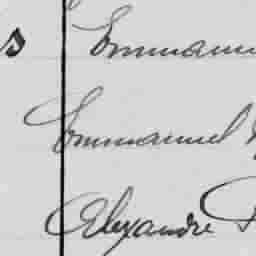 s Emmanu
Emmanuel
Alexandre